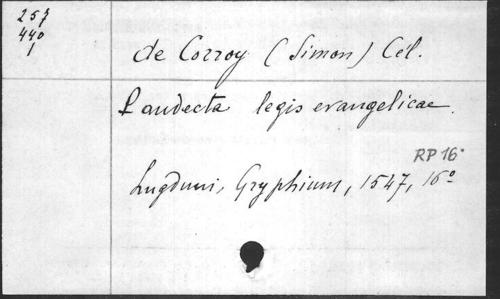 257
440
1
de Corroy (Simon) Cél.
Pandecta legis evangelicae.
RP 16°
Lugduni, Gryphium, 1547, 16°